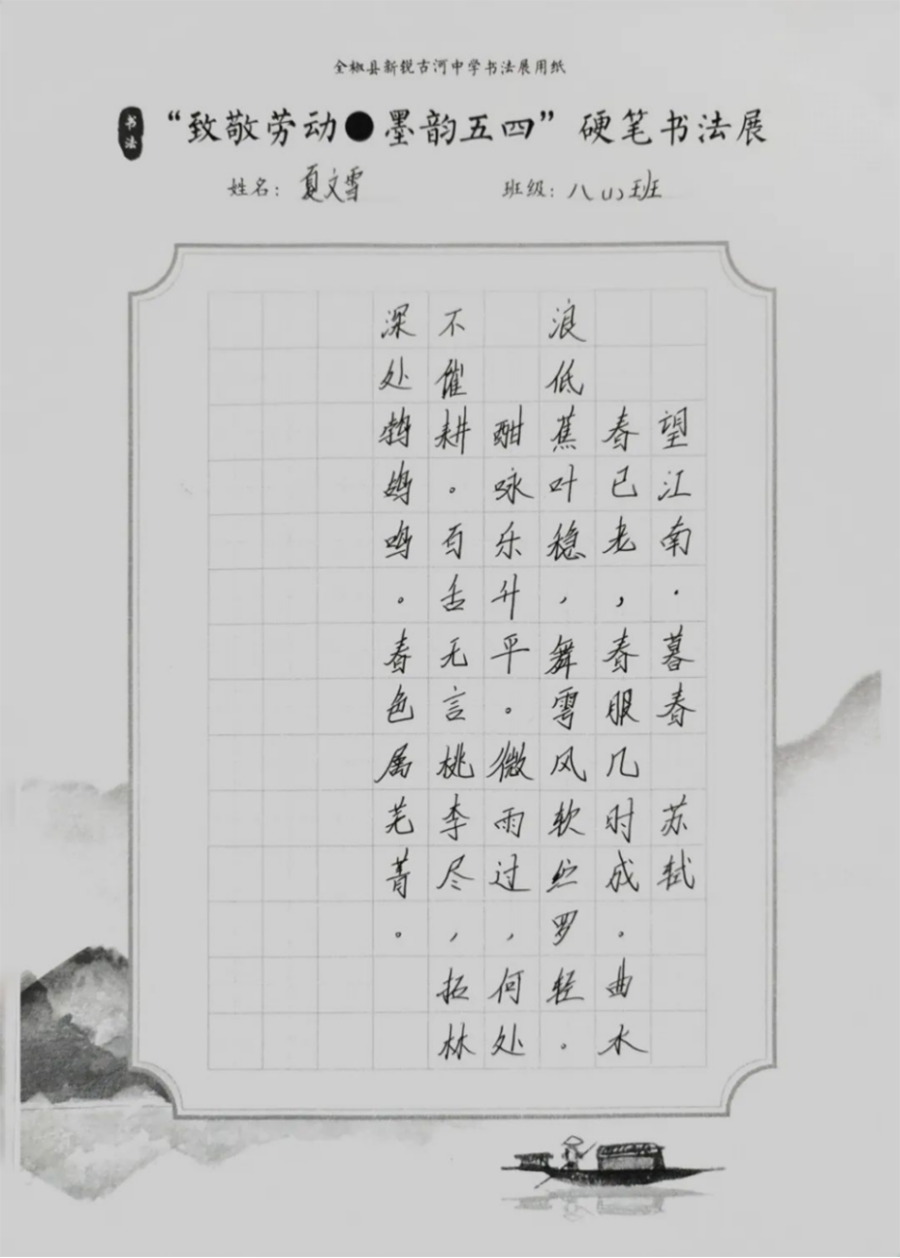 全椒县新锐古河中学书法展用纸
书法
“致敬劳动●墨韵五四”硬笔书法展
姓名：夏文雪 班级：八(1)班
望江南·暮春 苏轼
春已老，春服几时成。曲水
浪低蕉叶稳，舞雩风软纻罗轻。
酣咏乐升平。微雨过，何处
不催耕。百舌无言桃李尽，柘林
深处鹁鸪鸣。春色属芜菁。